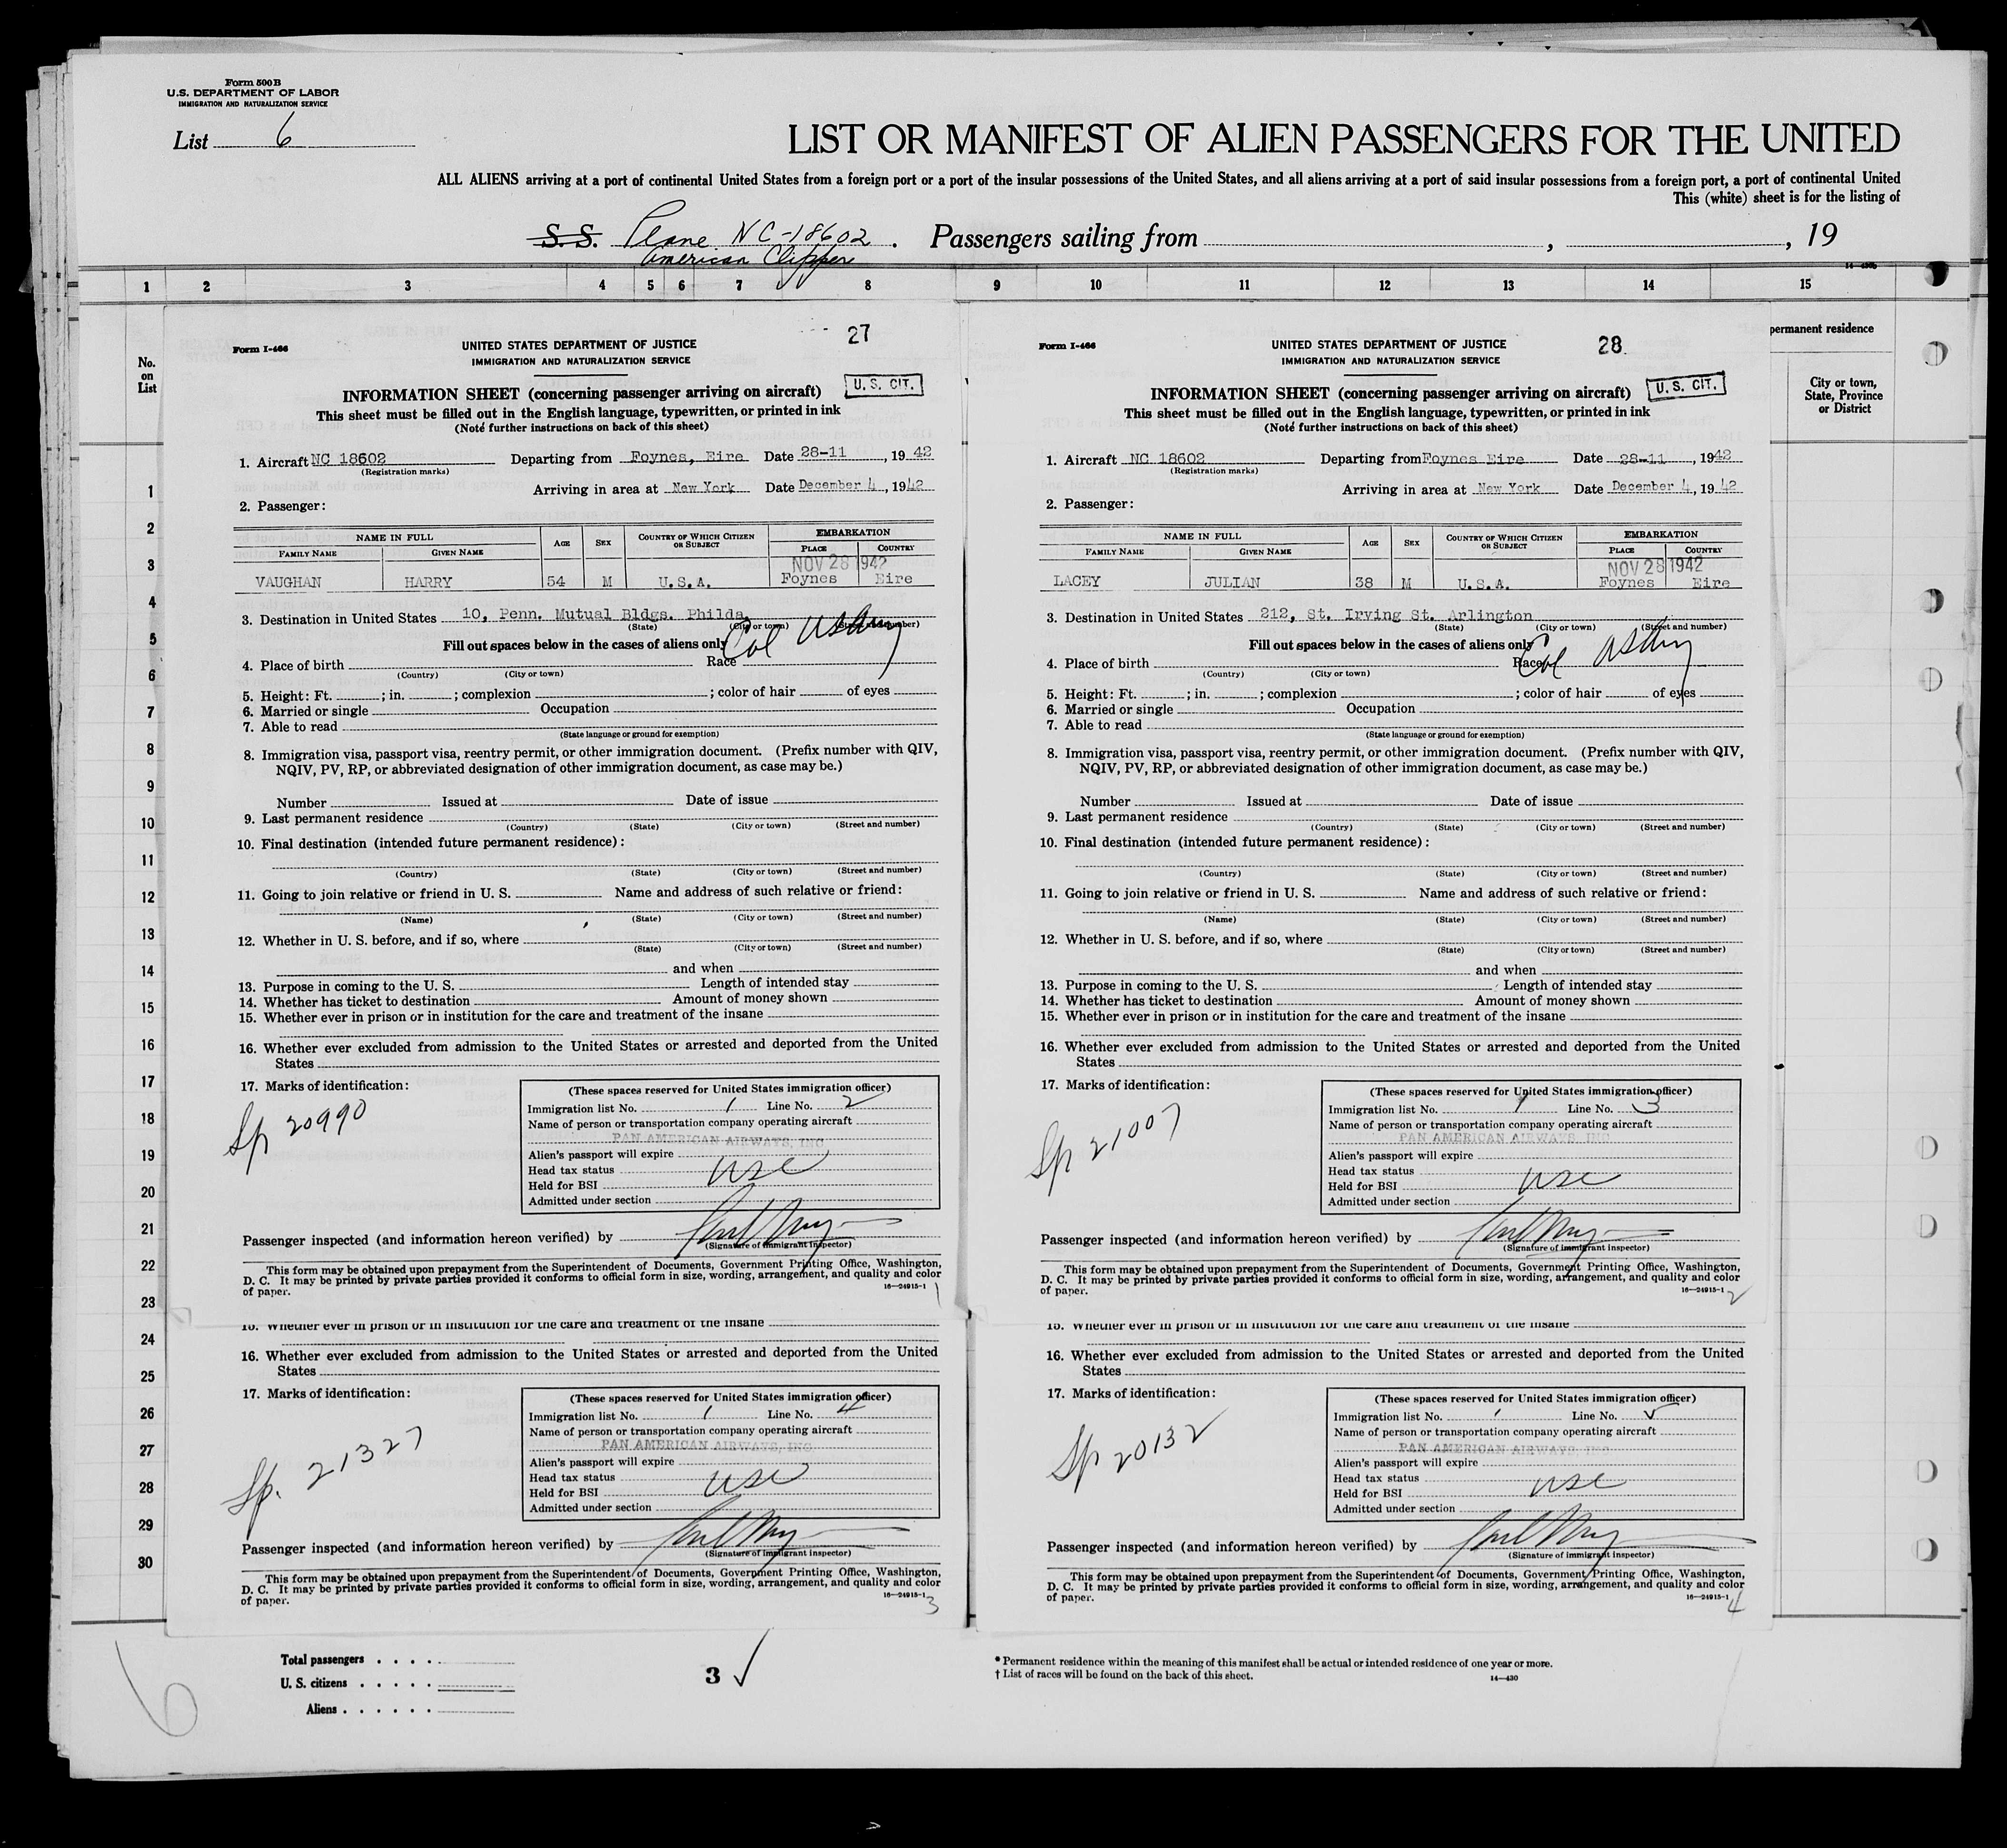 Form 500 B
U. S. DEPARTMENT OF LABOR
IMMIGRATION AND NATURALIZATION SERVICE
List 6
LIST OR MANIFEST OF ALIEN PASSENGERS FOR THE UNITED
ALL ALIENS arriving at a port of continental United States from a foreign port or a port of the insular possessions of the United States, and all aliens arriving at a port of said insular possessions from a foreign port, a port of continental United
This (white) sheet is for the listing of
S. S. Plane NC-18602 . Passengers sailing from , , 19
American Clipper
14-430
1 2 3 4 5 6 7 8 9 10 11 12 13 14 15
No. on List
permanent residence
City or town, State, Province or District
1
2
3
4
5
6
7
8
9
10
11
12
13
14
15
16
17
18
19
20
21
22
23
24
25
26
27
28
29
30
27
Form I-466
UNITED STATES DEPARTMENT OF JUSTICE
IMMIGRATION AND NATURALIZATION SERVICE
U. S. CIT.
INFORMATION SHEET (concerning passenger arriving on aircraft)
This sheet must be filled out in the English language, typewritten, or printed in ink
(Note further instructions on back of this sheet)
1. Aircraft NC 18602 Departing from Foynes, Eire Date 28-11 , 19 42
(Registration marks)
Arriving in area at New York Date December 4 , 1942
2. Passenger:
NAME IN FULL AGE SEX COUNTRY OF WHICH CITIZEN OR SUBJECT EMBARKATION
FAMILY NAME GIVEN NAME PLACE COUNTRY
NOV 28 1942
VAUGHAN HARRY 54 M U.S.A. Foynes Eire
3. Destination in United States 10, Penn. Mutual Bldgs. Philda.
(State) (City or town) (Street and number)
Col US Army
Fill out spaces below in the cases of aliens only
4. Place of birth Race
(Country) (City or town)
5. Height: Ft. ; in. ; complexion ; color of hair of eyes
6. Married or single Occupation
7. Able to read
(State language or ground for exemption)
8. Immigration visa, passport visa, reentry permit, or other immigration document. (Prefix number with QIV,
NQIV, PV, RP, or abbreviated designation of other immigration document, as case may be.)
Number Issued at Date of issue
9. Last permanent residence
(Country) (State) (City or town) (Street and number)
10. Final destination (intended future permanent residence):
(Country) (State) (City or town) (Street and number)
11. Going to join relative or friend in U. S. Name and address of such relative or friend:
(Name) (State) (City or town) (Street and number)
12. Whether in U. S. before, and if so, where
(State) (City or town) (Street and number)
and when
13. Purpose in coming to the U. S. Length of intended stay
14. Whether has ticket to destination Amount of money shown
15. Whether ever in prison or in institution for the care and treatment of the insane
16. Whether ever excluded from admission to the United States or arrested and deported from the United
States
17. Marks of identification:
Sp 20990
(These spaces reserved for United States immigration officer)
Immigration list No. 1 Line No. 2
Name of person or transportation company operating aircraft
PAN AMERICAN AIRWAYS, INC
Alien's passport will expire
Head tax status USC
Held for BSI
Admitted under section
Passenger inspected (and information hereon verified) by
(Signature of immigrant inspector)
This form may be obtained upon prepayment from the Superintendent of Documents, Government Printing Office, Washington,
D. C. It may be printed by private parties provided it conforms to official form in size, wording, arrangement, and quality and color
of paper. 16—24915-1
1
28
Form I-466
UNITED STATES DEPARTMENT OF JUSTICE
IMMIGRATION AND NATURALIZATION SERVICE
U. S. CIT.
INFORMATION SHEET (concerning passenger arriving on aircraft)
This sheet must be filled out in the English language, typewritten, or printed in ink
(Note further instructions on back of this sheet)
1. Aircraft NC 18602 Departing from Foynes Eire Date 28-11 , 1942
(Registration marks)
Arriving in area at New York Date December 4, 19 42
2. Passenger:
NAME IN FULL AGE SEX COUNTRY OF WHICH CITIZEN OR SUBJECT EMBARKATION
FAMILY NAME GIVEN NAME PLACE COUNTRY
NOV 28 1942
LACEY JULIAN 38 M U.S.A. Foynes Eire
3. Destination in United States 212, St. Irving St. Arlington
(State) (City or town) (Street and number)
Col US Army
Fill out spaces below in the cases of aliens only
4. Place of birth Race
(Country) (City or town)
5. Height: Ft. ; in. ; complexion ; color of hair of eyes
6. Married or single Occupation
7. Able to read
(State language or ground for exemption)
8. Immigration visa, passport visa, reentry permit, or other immigration document. (Prefix number with QIV,
NQIV, PV, RP, or abbreviated designation of other immigration document, as case may be.)
Number Issued at Date of issue
9. Last permanent residence
(Country) (State) (City or town) (Street and number)
10. Final destination (intended future permanent residence):
(Country) (State) (City or town) (Street and number)
11. Going to join relative or friend in U. S. Name and address of such relative or friend:
(Name) (State) (City or town) (Street and number)
12. Whether in U. S. before, and if so, where
(State) (City or town) (Street and number)
and when
13. Purpose in coming to the U. S. Length of intended stay
14. Whether has ticket to destination Amount of money shown
15. Whether ever in prison or in institution for the care and treatment of the insane
16. Whether ever excluded from admission to the United States or arrested and deported from the United
States
17. Marks of identification:
Sp 21007
(These spaces reserved for United States immigration officer)
Immigration list No. 1 Line No. 3
Name of person or transportation company operating aircraft
PAN AMERICAN AIRWAYS, INC
Alien's passport will expire
Head tax status
Held for BSI USC
Admitted under section
Passenger inspected (and information hereon verified) by
(Signature of immigrant inspector)
This form may be obtained upon prepayment from the Superintendent of Documents, Government Printing Office, Washington,
D. C. It may be printed by private parties provided it conforms to official form in size, wording, arrangement, and quality and color
of paper. 16—24915-1
2
15. Whether ever in prison or in institution for the care and treatment of the insane
16. Whether ever excluded from admission to the United States or arrested and deported from the United
States
17. Marks of identification:
Sp. 21327
(These spaces reserved for United States immigration officer)
Immigration list No. 1 Line No. 4
Name of person or transportation company operating aircraft
PAN AMERICAN AIRWAYS, INC
Alien's passport will expire
Head tax status USC
Held for BSI
Admitted under section
Passenger inspected (and information hereon verified) by
(Signature of immigrant inspector)
This form may be obtained upon prepayment from the Superintendent of Documents, Government Printing Office, Washington,
D. C. It may be printed by private parties provided it conforms to official form in size, wording, arrangement, and quality and color
of paper. 16—24915-1
3
15. Whether ever in prison or in institution for the care and treatment of the insane
16. Whether ever excluded from admission to the United States or arrested and deported from the United
States
17. Marks of identification:
Sp 20132
(These spaces reserved for United States immigration officer)
Immigration list No. 1 Line No. 5
Name of person or transportation company operating aircraft
PAN AMERICAN AIRWAYS, INC
Alien's passport will expire
Head tax status
Held for BSI USC
Admitted under section
Passenger inspected (and information hereon verified) by
(Signature of immigrant inspector)
This form may be obtained upon prepayment from the Superintendent of Documents, Government Printing Office, Washington,
D. C. It may be printed by private parties provided it conforms to official form in size, wording, arrangement, and quality and color
of paper. 16—24915-1
4
6
Total passengers . . . .
U. S. citizens . . . . .
Aliens . . . . . .
3 ✓
* Permanent residence within the meaning of this manifest shall be actual or intended residence of one year or more.
† List of races will be found on the back of this sheet. 14—430